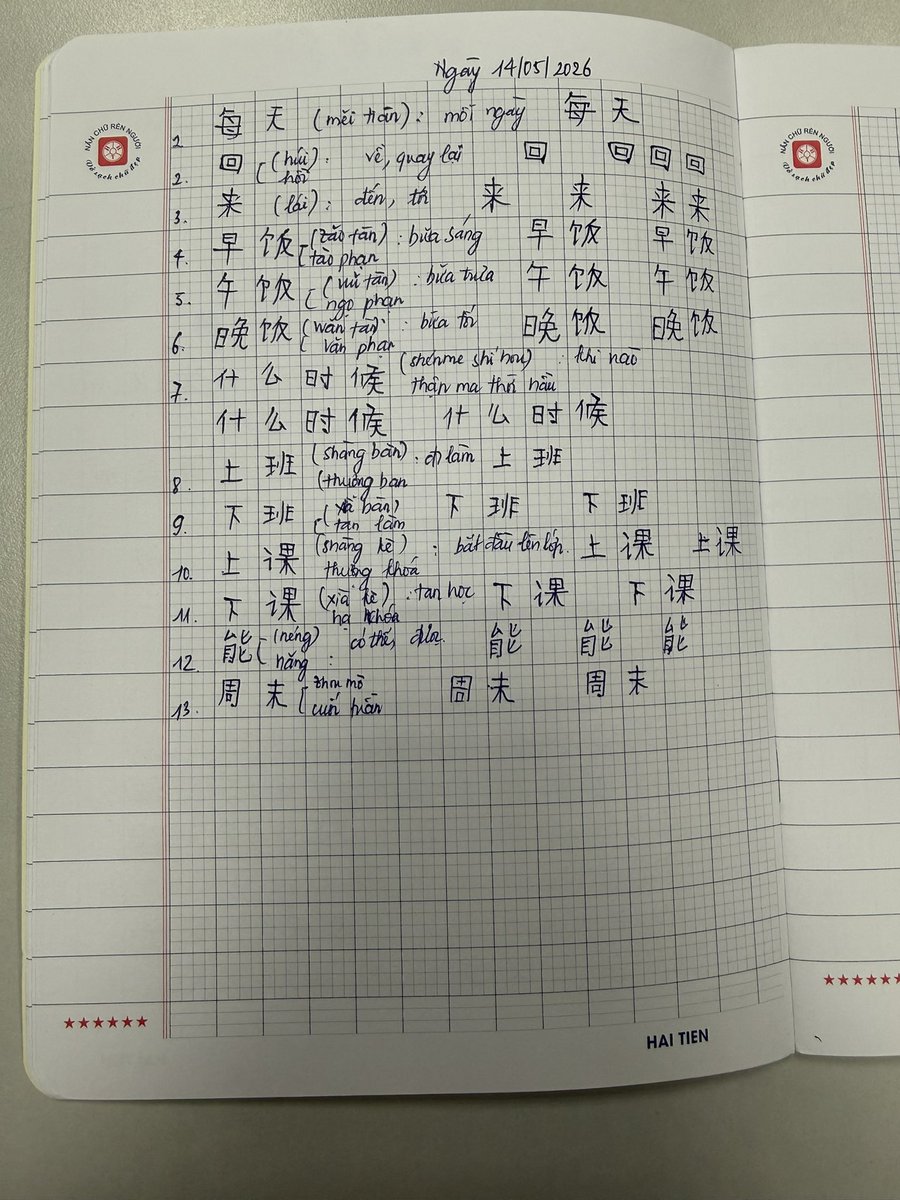 Ngày 14/05/2026
NẮN CHỮ RÈN NGƯỜI
Vở sạch chữ đẹp
NẮN CHỮ RÈN NGƯỜI
Vở sạch chữ đẹp
2. 每天 (měi tiān): mỗi ngày 每天
2. 回 (húi): về, quay lại 回 回 回 回
hồi
3. 来 (lái): đến, tới 来 来 来 来
4. 早饭 (zǎo fàn): bữa sáng 早饭 早饭
tảo phạn
5. 午饭 (wǔ fàn): bữa trưa 午饭 午饭
ngọ phạn
6. 晚饭 (wǎn fàn): bữa tối 晚饭 晚饭
vãn phạn
7. 什么时候 (shénme shí hou): khi nào
thậm ma thời hầu
什么时候 什么时候
8. 上班 (shàng bān): đi làm 上班
(thượng ban
9. 下班 (xià bān) 下班 下班
tan làm
10. 上课 (shàng kè): bắt đầu lên lớp. 上课 上课
thượng khoá
11. 下课 (xià kè): tan học 下课 下课
hạ khóa
12. 能 (néng) có thể, được 能 能 能
năng :
13. 周末 zhu mò 周末 周末
cuối tuần
HAI TIEN